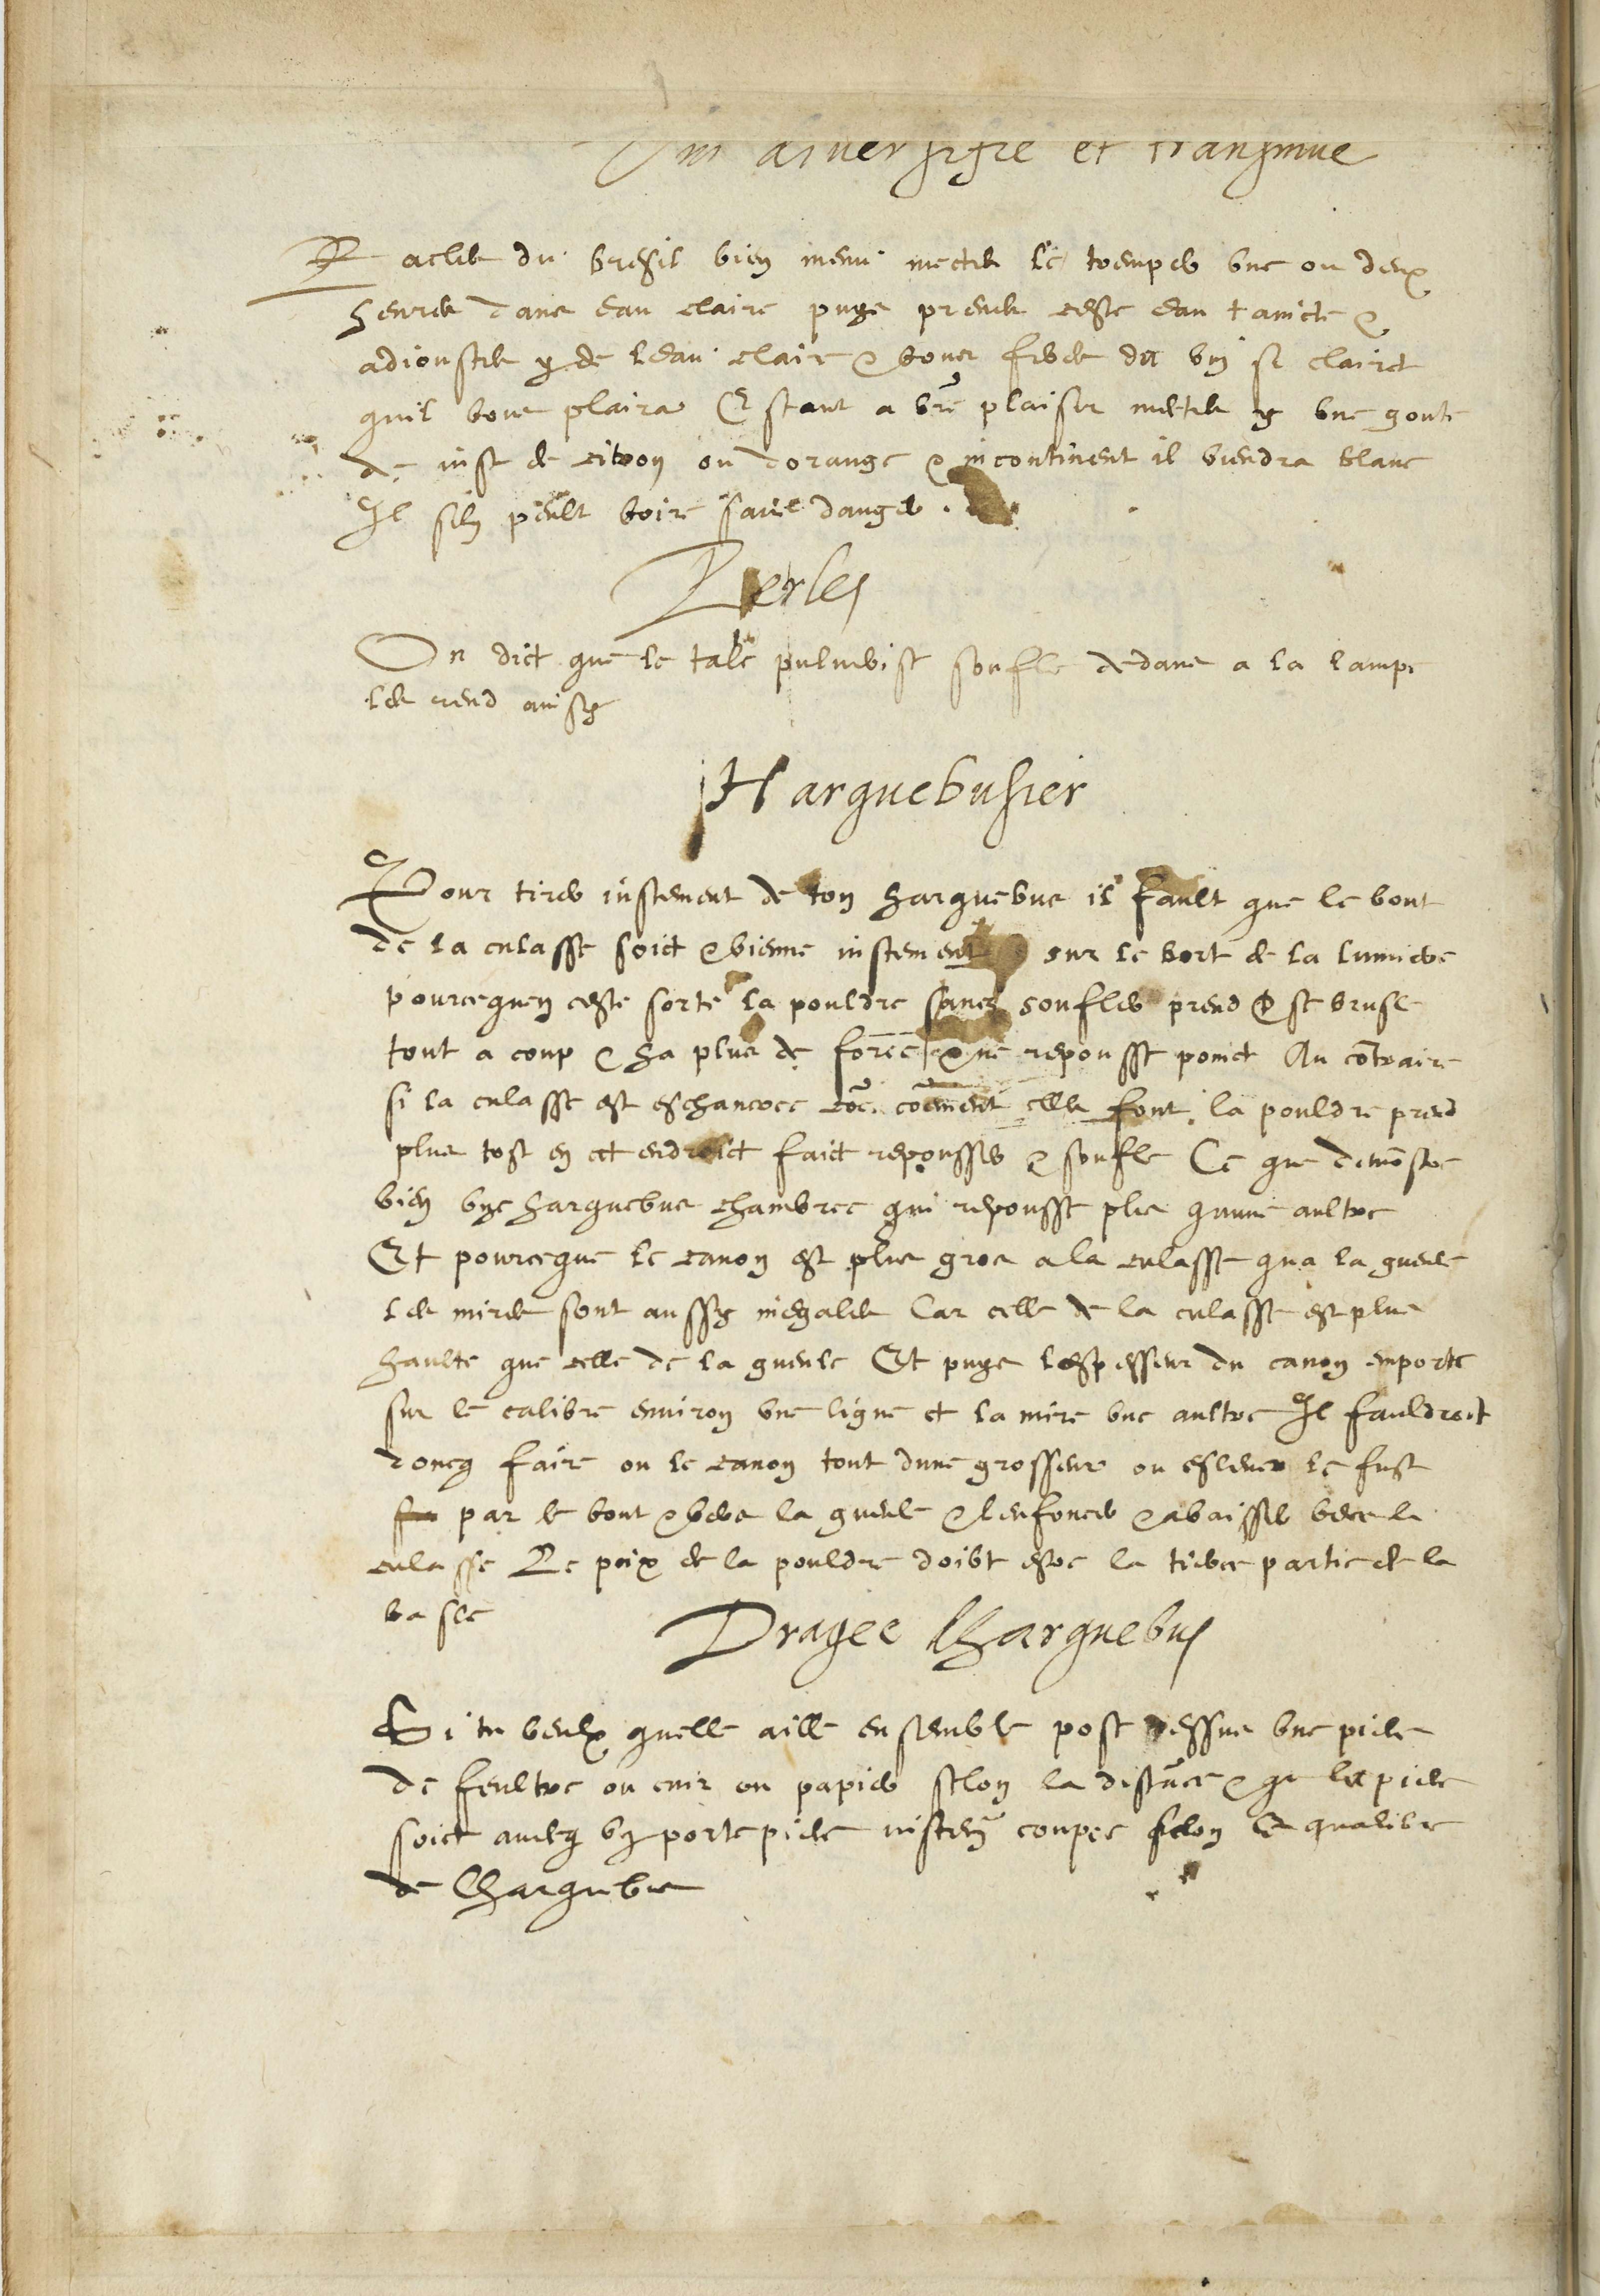 Vin diversifie et transmue
Raclés du bresil bien menu mectés le tremper une ou deux
heures dans eau claire puys prenés ceste eau taincte &
adioustés y de leau claire & vous ferés du vin si clairet
quil vous plaira Estant a vr̃e plaisir mectés y une goute
de iust de citron ou dorange & incontinent il viendra blanc
Il sen peult boire sans danger
Perles
On dict que le talc pulverisé souflé dedans a la lampe
les rend ainsy
Harquebusier
Pour tirer iustement de ton harquebus il fault que le bout
de la culasse soict & vienne iustement sur le bort de la lumiere
pourcequen ceste sorte la pouldre sans soufler prend & se brusle
tout a coup & ha plus de force & ne repousse poinct Au cõtraire
si la culasse est eschancree cõe cõement elles font la pouldre prend
plus tost en cet endroict faict repousser & soufle Ce que demõstre
bien une harquebus chambree qui repousse plus quune aultre
Et pourceque le canon est plus gros a la culasse qua la gueule
les mires sont aussy inegales Car celle de la culasse est plus
haulte que celle de la gueule Et puys lespesseur du canon emporte
sur le calibre environ une ligne et la mire une aultre Il fauldroict
doncq faire ou le canon tout dune grosseur ou eslever le fust
par le bout & vers la gueule & lenfoncer & abaisser vers la
culasse Le poix de la pouldre doibt estre la tierce partie de la
basle
Dragee dharquebus
Si tu veulx quelle aille ensemble pose dessus une piece
de feultre ou cuir ou papier selon la distãce & que la piece
soict avecq un porte piece iustem̃ coupee selon le qualibre
de lharquebus